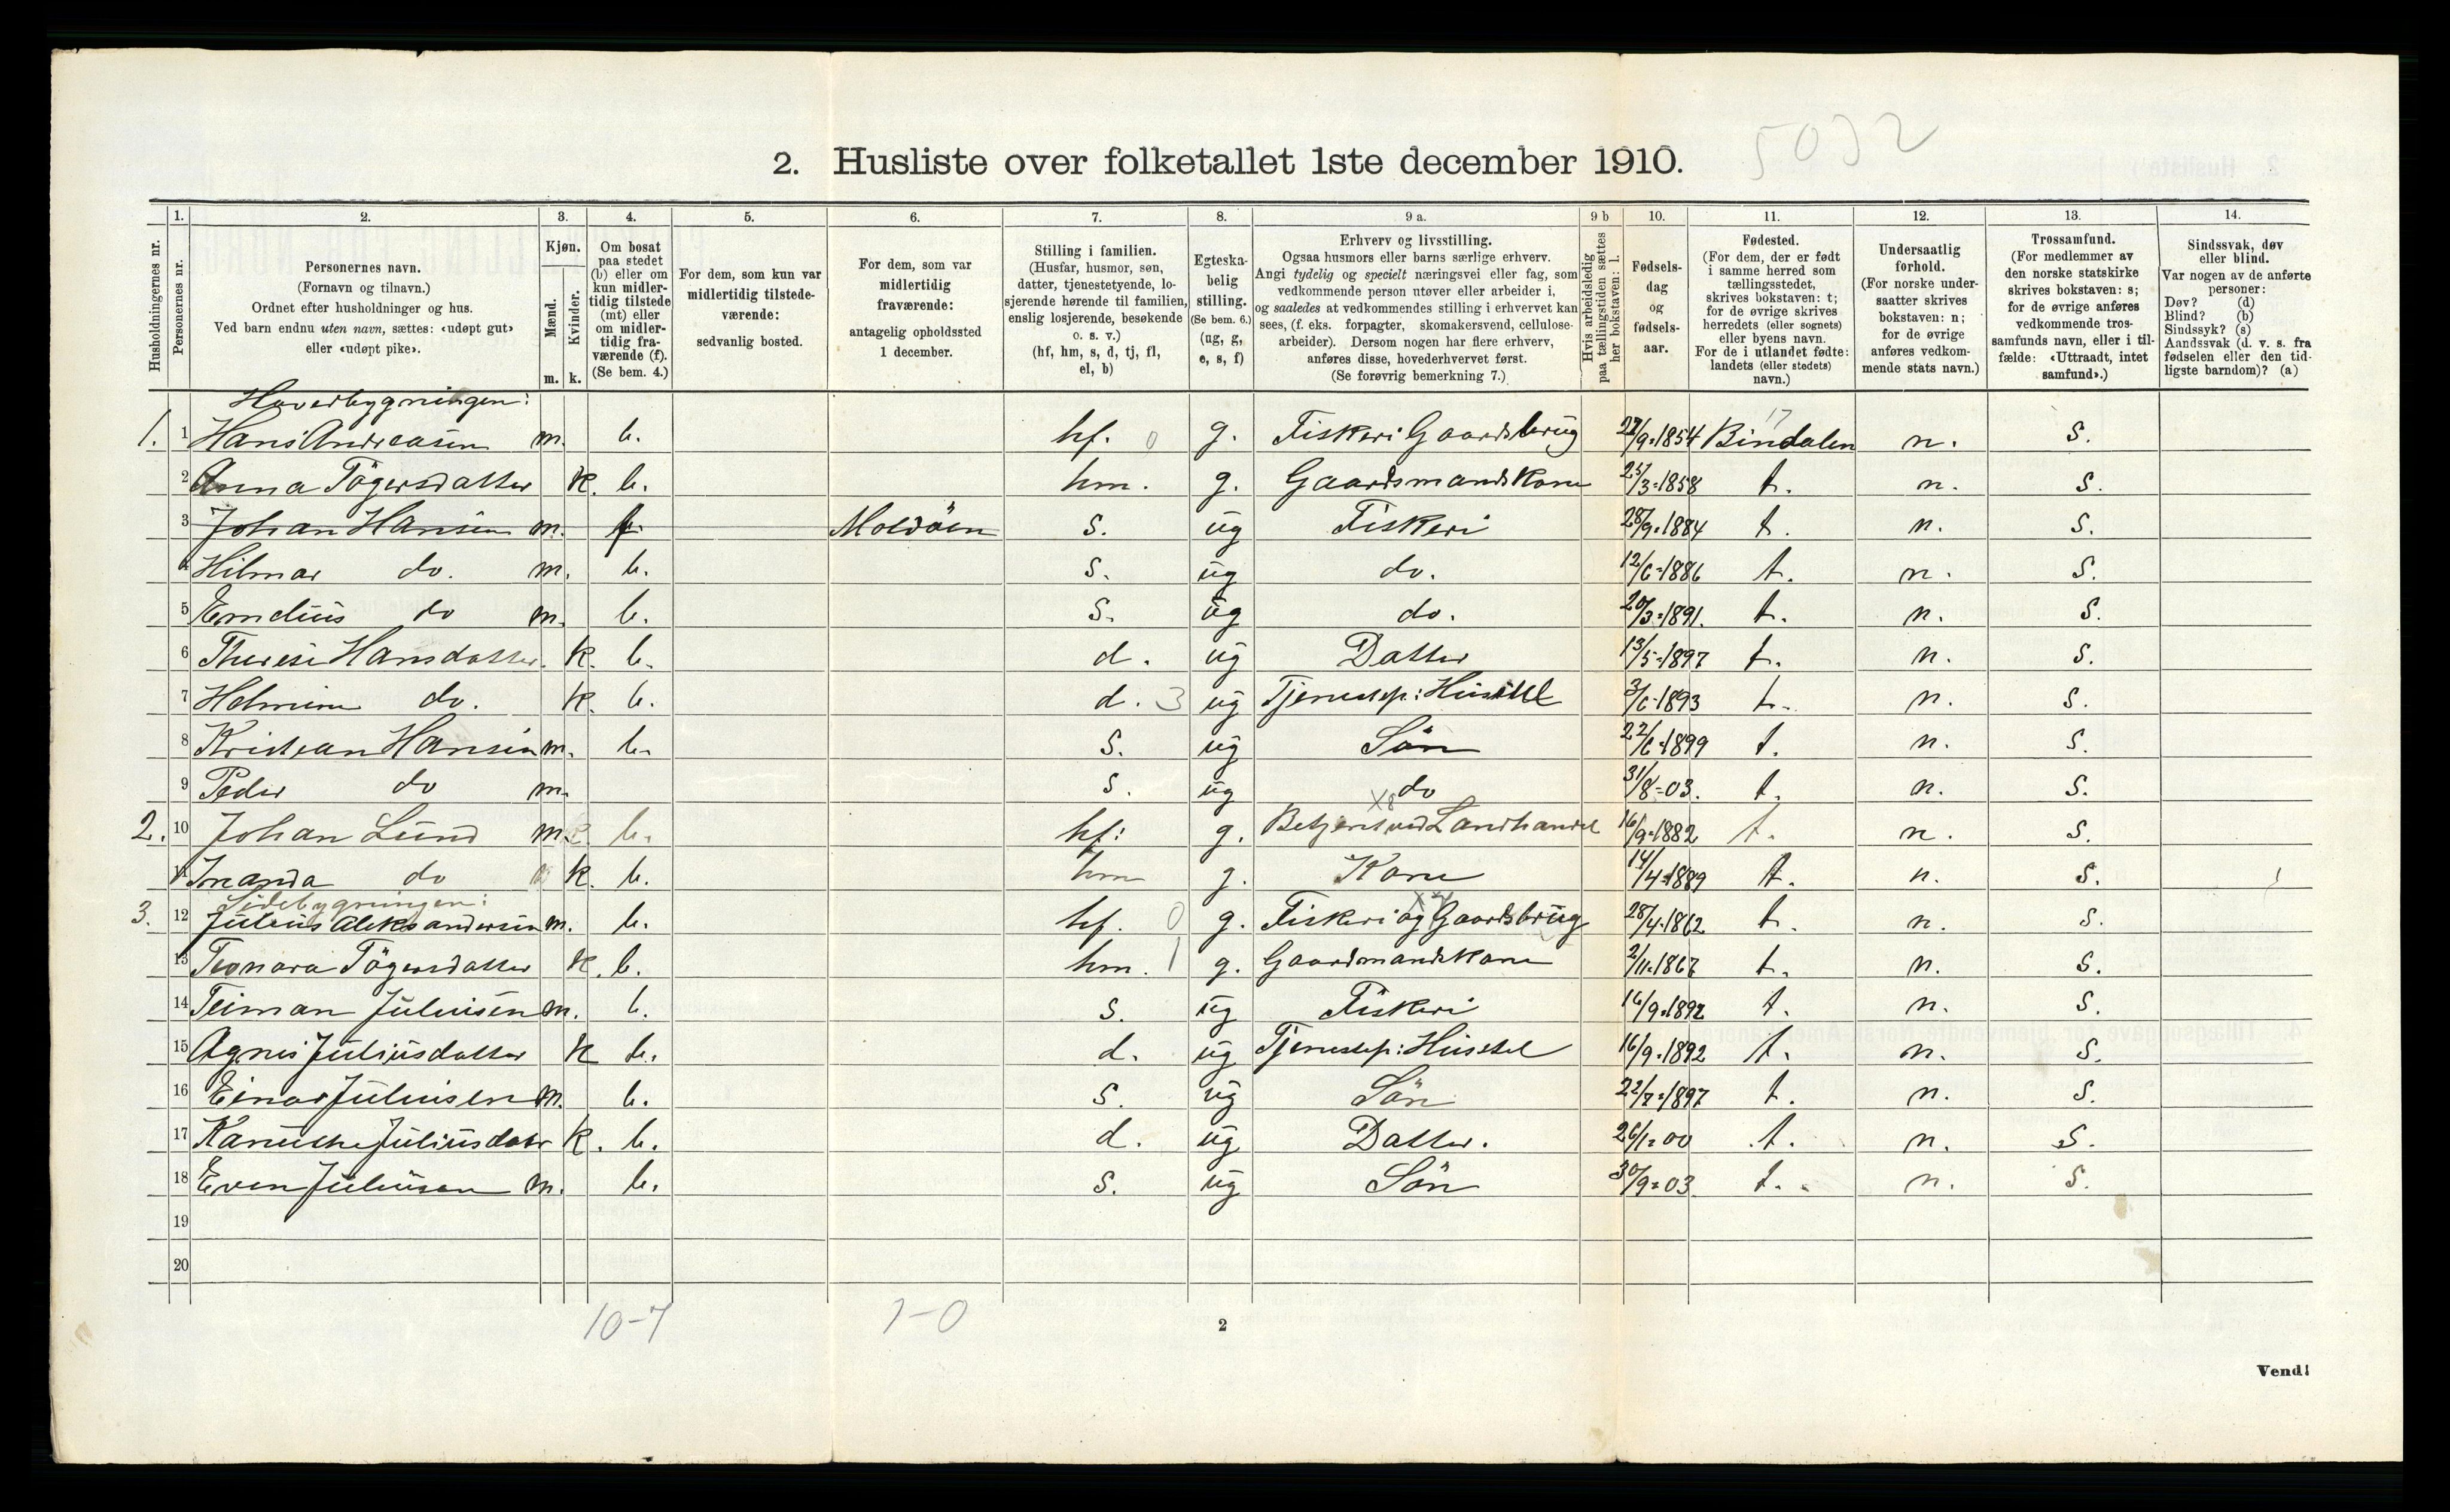 5032
2. Husliste over folketallet 1ste december 1910.
Husholdningernes nr.
1. Personernes nr.
2. Personernes navn.
(Fornavn og tilnavn.)
Ordnet efter husholdninger og hus.
Ved barn endnu uten navn, sættes: «udøpt gut»
eller «udøpt pike».
3. Kjøn.
Mænd. m.
Kvinder. k.
4. Om bosat
paa stedet
(b) eller om
kun midler-
tidig tilstede
(mt) eller
om midler-
tidig fra-
værende (f).
(Se bem. 4.)
5. For dem, som kun var
midlertidig tilstede-
værende:
sedvanlig bosted.
6. For dem, som var
midlertidig
fraværende:
antagelig opholdssted
1 december.
7. Stilling i familien.
(Husfar, husmor, søn,
datter, tjenestetyende, lo-
sjerende hørende til familien,
enslig losjerende, besøkende
o. s. v.)
(hf, hm, s, d, tj, fl,
el, b)
8. Egteska-
belig
stilling.
(Se bem. 6.)
(ug, g,
e, s, f)
9 a. Erhverv og livsstilling.
Ogsaa husmors eller barns særlige erhverv.
Angi tydelig og specielt næringsvei eller fag, som
vedkommende person utøver eller arbeider i,
og saaledes at vedkommendes stilling i erhvervet kan
sees, (f. eks. forpagter, skomakersvend, cellulose-
arbeider). Dersom nogen har flere erhverv,
anføres disse, hovederhvervet først.
(Se forøvrig bemerkning 7.)
9 b Hvis arbeidsledig
paa tællingstiden sættes
her bokstaven: l.
10. Fødsels-
dag
og
fødsels-
aar.
11. Fødested.
(For dem, der er født
i samme herred som
tællingsstedet,
skrives bokstaven: t;
for de øvrige skrives
herredets (eller sognets)
eller byens navn.
For de i utlandet fødte:
landets (eller stedets)
navn.)
12. Undersaatlig
forhold.
(For norske under-
saatter skrives
bokstaven: n;
for de øvrige
anføres vedkom-
mende stats navn.)
13. Trossamfund.
(For medlemmer av
den norske statskirke
skrives bokstaven: s;
for de øvrige anføres
vedkommende tros-
samfunds navn, eller i til-
fælde: «Uttraadt, intet
samfund».)
14. Sindssvak, døv
eller blind.
Var nogen av de anførte
personer:
Døv? (d)
Blind? (b)
Sindssyk? (s)
Aandssvak (d. v. s. fra
fødselen eller den tid-
ligste barndom)? (a)
Hoverbygningen:
1. 1 Hans Andreasen m. b. hf. 0 g. Fiskeri Gaardsbrug 27/9-1854 17 Bindalen n. s.
2 Anna Tögersdatter k. b. hm. g. Gaardsmandskone 25/3-1858 t. n. s.
3 Johan Hansen m. f. Moldöen s. ug Fiskeri 28/9-1884 t. n. s.
4 Hilmar do. m. b. s. ug do. 12/6-1886 t. n. s.
5 Emelius do m. b. s. ug do. 20/3-1891. t. n. s.
6 Therese Hansdatter. k. b. d. ug Datter 13/5-1897 t. n. s.
7 Helmine do. k. b. d. 3 ug Tjenestep: Husstel 3/6-1893 t. n. s.
8 Kristian Hansen m. b. s. ug Sön 22/6-1899 t. n. s.
9 Peder do m. s. ug do 31/8-03. t. n. s.
2. 10 Johan Lund m. b. hf: g. X8 Betjent ved Landhandel 16/9-1882 t. n. s.
11 Inanda do k. b. hm g. Kone 14/4-1889 t. n. s.
Sidebygningen:
3. 12 Julius Aleksandersen m. b. hf. 0 g. Fiskeri og Gaardsbrug 28/4-1862 t. n. s.
13 Leonora Tögersdatter k. b. hm. 1 g. Gaardmandskone 2/11-1867 t. n. s.
14 Teiman Juliusen m. b. s. ug Fiskeri 16/9-1892 t. n. s.
15 Agnes Juliusdatter k b. d. ug Tjenestep: Husstel 16/9-1892 t. n. s.
16 Einar Juliusen m. b. s. ug Sön 22/7-1897 t. n. s.
17 Juliusdatr k. b. d. ug Datter. 26/1-00 t. n. s.
18 Even Juliusen m. b. s. ug Sön 30/9-03 t. n. s.
19
20
10-7 1-0
2
Vend!